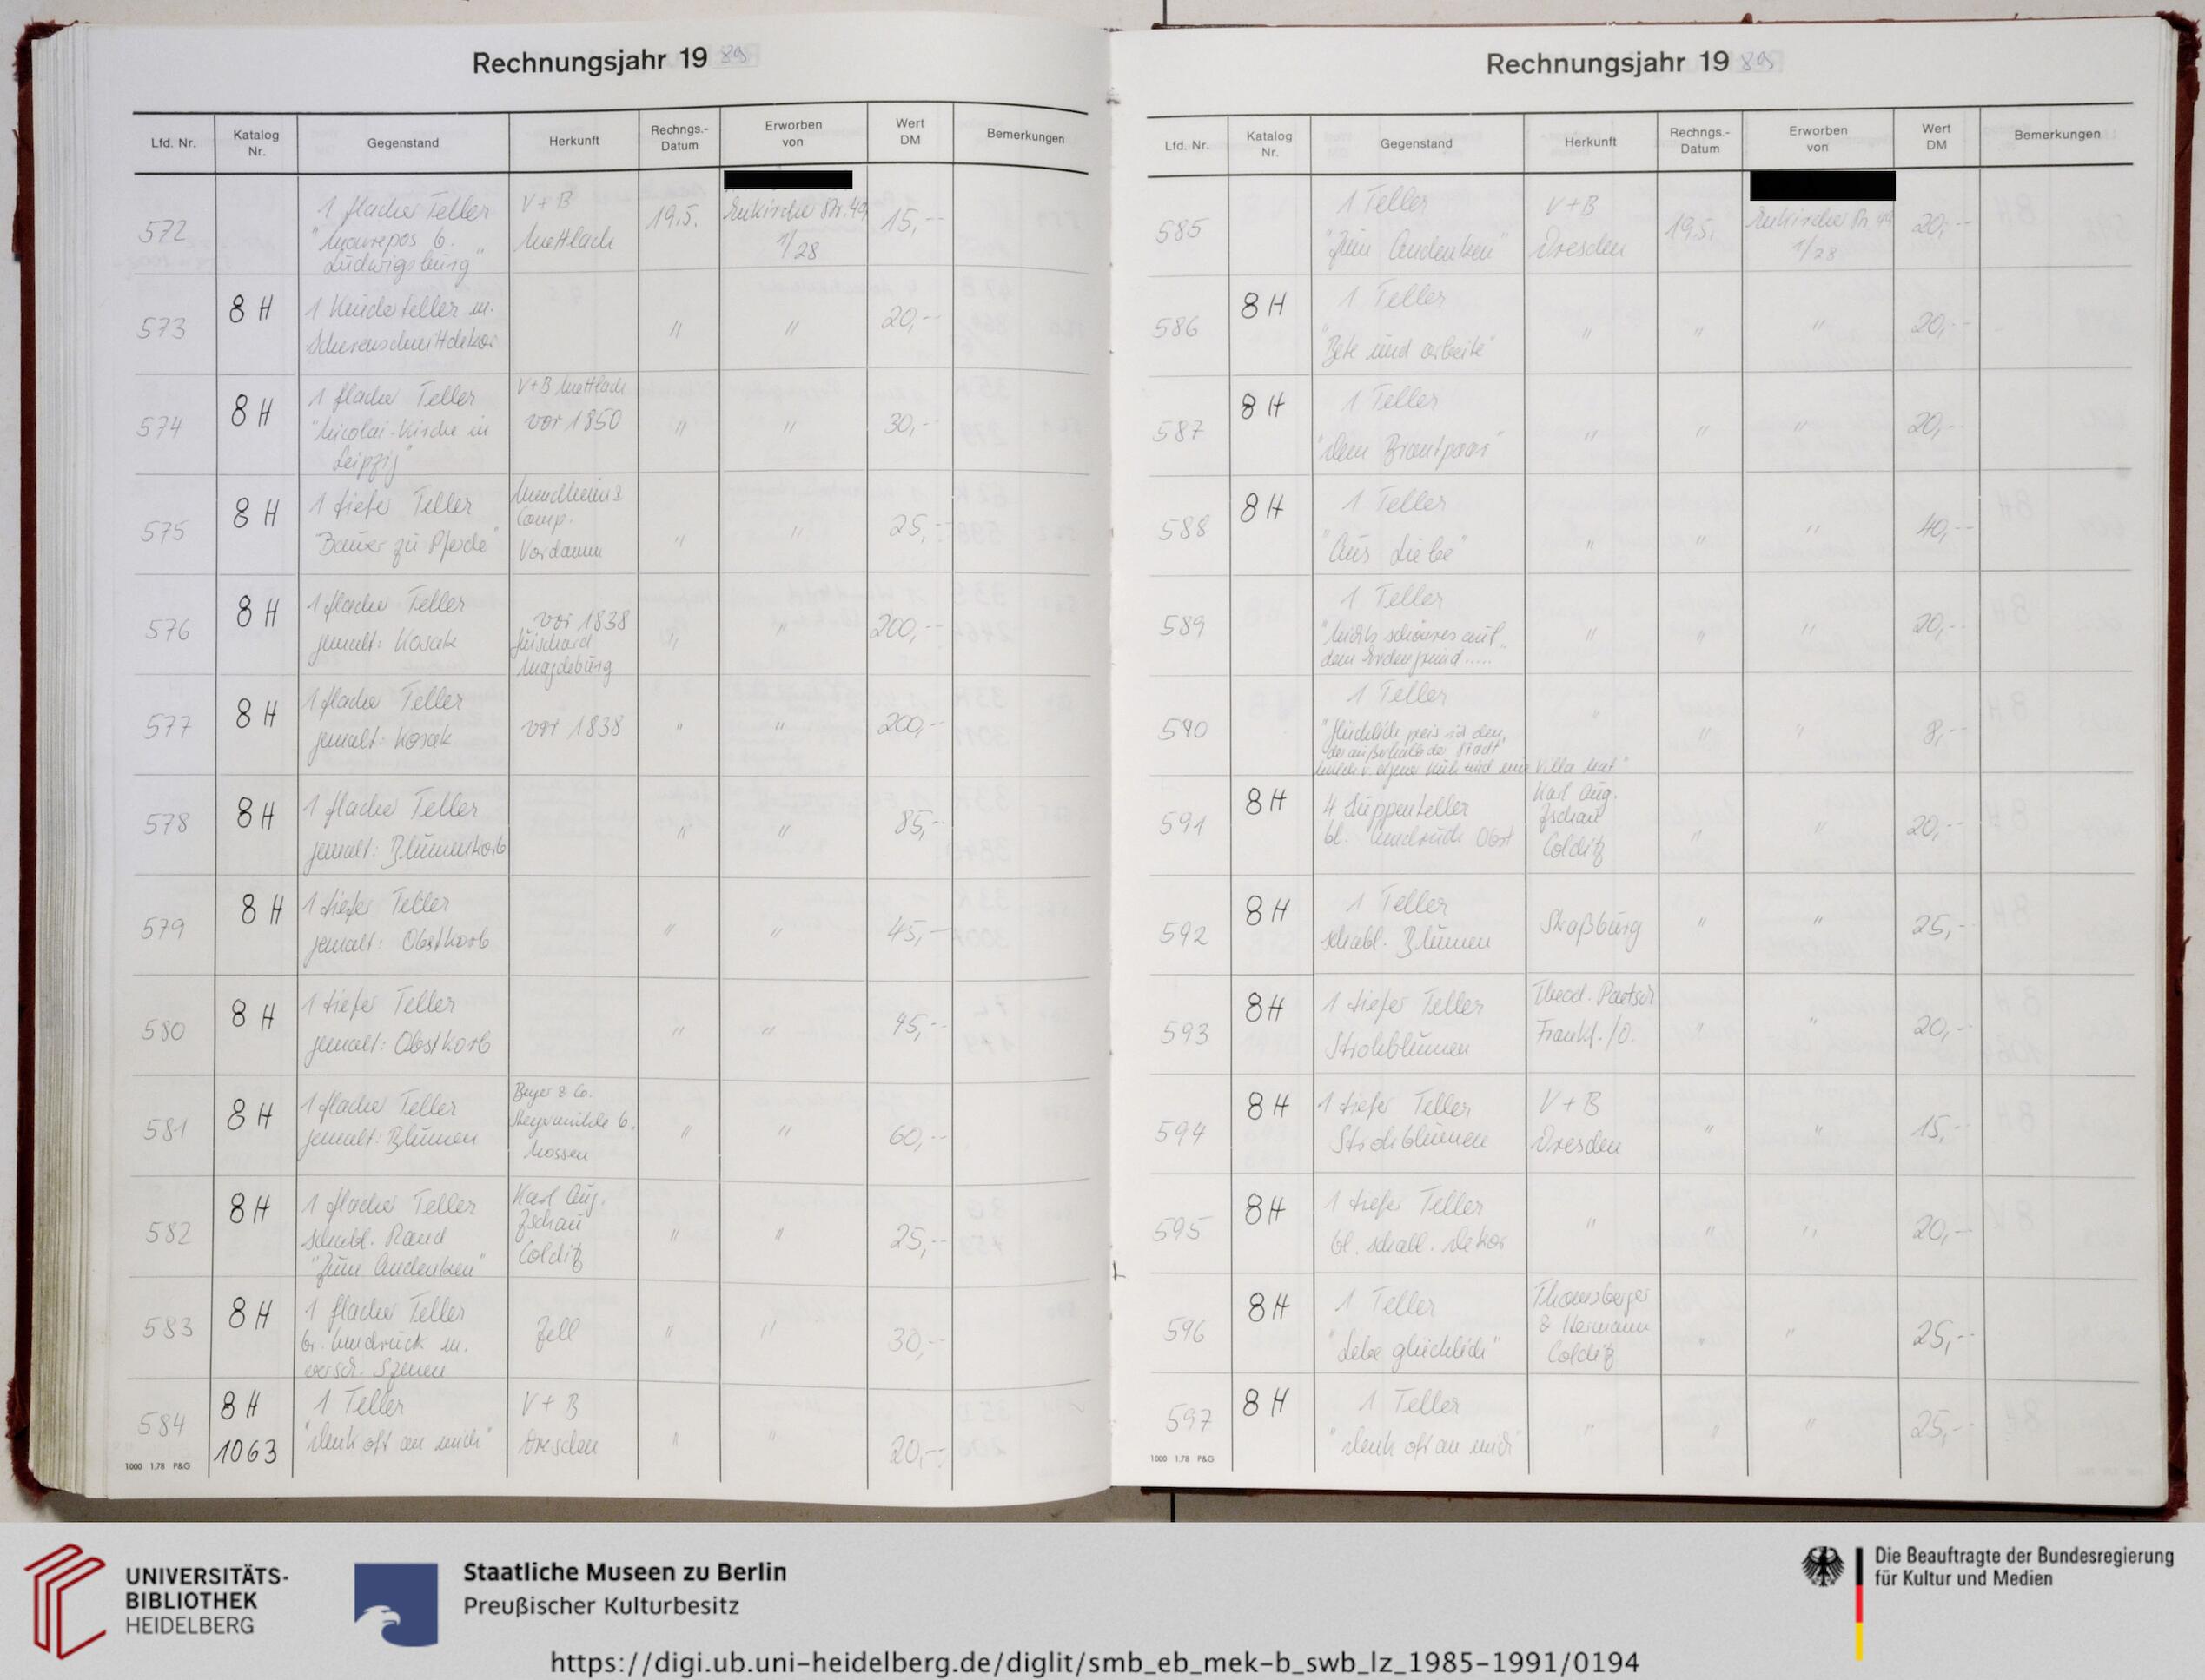 Rechnungsjahr 19 89
Lfd. Nr. Katalog Nr. Gegenstand Herkunft Rechngs.-Datum Erworben von Wert DM Bemerkungen
572 1 flacher Teller V+B 19.5. 15,--
"Monrepos b. Mettlach 1/28
Ludwigsburg"
573 8 H 1 Kinderteller m. " " 20,--
Scherenschnittdekor
574 8 H 1 flacher Teller V+B Mettlach " " 30,--
"Nicolai-Kirche in vor 1850
Leipzig"
575 8 H 1 tiefer Teller Mundheim & " " 25,--
Bauer zu Pferde" Comp.
Vordamm
576 8 H 1 flacher Teller vor 1838 " " 200,--
gemalt: Kosak Guischard
Magdeburg
577 8 H 1 flacher Teller vor 1838 " " 200,--
gemalt: Kosak
578 8 H 1 flacher Teller " " 85,--
gemalt: Blumenkorb
579 8 H 1 tiefer Teller " " 45,--
gemalt: Obstkorb
580 8 H 1 tiefer Teller " " 45,--
gemalt: Obstkorb
581 8 H 1 flacher Teller Beyer & Co. " " 60,--
gemalt: Blumen b.
Nossen
582 8 H 1 flacher Teller Karl Aug. " " 25,--
schabl. Rand Zschau
"Zum Andenken" Colditz
583 8 H 1 flacher Teller Zell " " 30,--
br. Umdruck m.
versch. Szenen
584 8 H 1 Teller V + B " " 20,--
1063 "Denk oft an mich" Dresden
1000 1.78 P&G
Rechnungsjahr 19 89
Lfd. Nr. Katalog Nr. Gegenstand Herkunft Rechngs.-Datum Erworben von Wert DM Bemerkungen
585 1 Teller V+B 19.5. 20,--
"Zum Andenken" Dresden 1/28
586 8 H 1 Teller " " " 20,--
"Bete und arbeite"
587 8 H 1 Teller " " " 20,--
"Dem Brautpaar"
588 8 H 1 Teller " " " 40,--
"Aus Liebe"
589 1 Teller " " " 20,--
"Nichts schöneres auf
dem Erdengrund....."
590 1 Teller " " " 8,--
"Glücklich preis ich den,
der außerhalb der Stadt
Milch v. eigner Kuh und eine Villa hat"
591 8 H 4 Suppenteller Karl Aug. " " 20,--
bl. Umdruck Obst Zschau
Colditz
592 8 H 1 Teller Straßburg " " 25,--
schabl. Blumen
593 8 H 1 tiefer Teller Theod. Paetsch " " 20,--
Strohblumen Frankf./O.
594 8 H 1 tiefer Teller V + B " " 15,--
Strohblumen Dresden
595 8 H 1 tiefer Teller " " " 20,--
bl. schabl. Dekor
596 8 H 1 Teller Thomsberger " " 25,--
"Lebe glücklich" & Hermann
Colditz
597 8 H 1 Teller " " " 25,--
"Denk oft an mich"
1000 1.78 P&G
UNIVERSITÄTS-
BIBLIOTHEK
HEIDELBERG
Staatliche Museen zu Berlin
Preußischer Kulturbesitz
Die Beauftragte der Bundesregierung
für Kultur und Medien
https://digi.ub.uni-heidelberg.de/diglit/smb_eb_mek-b_swb_lz_1985-1991/0194